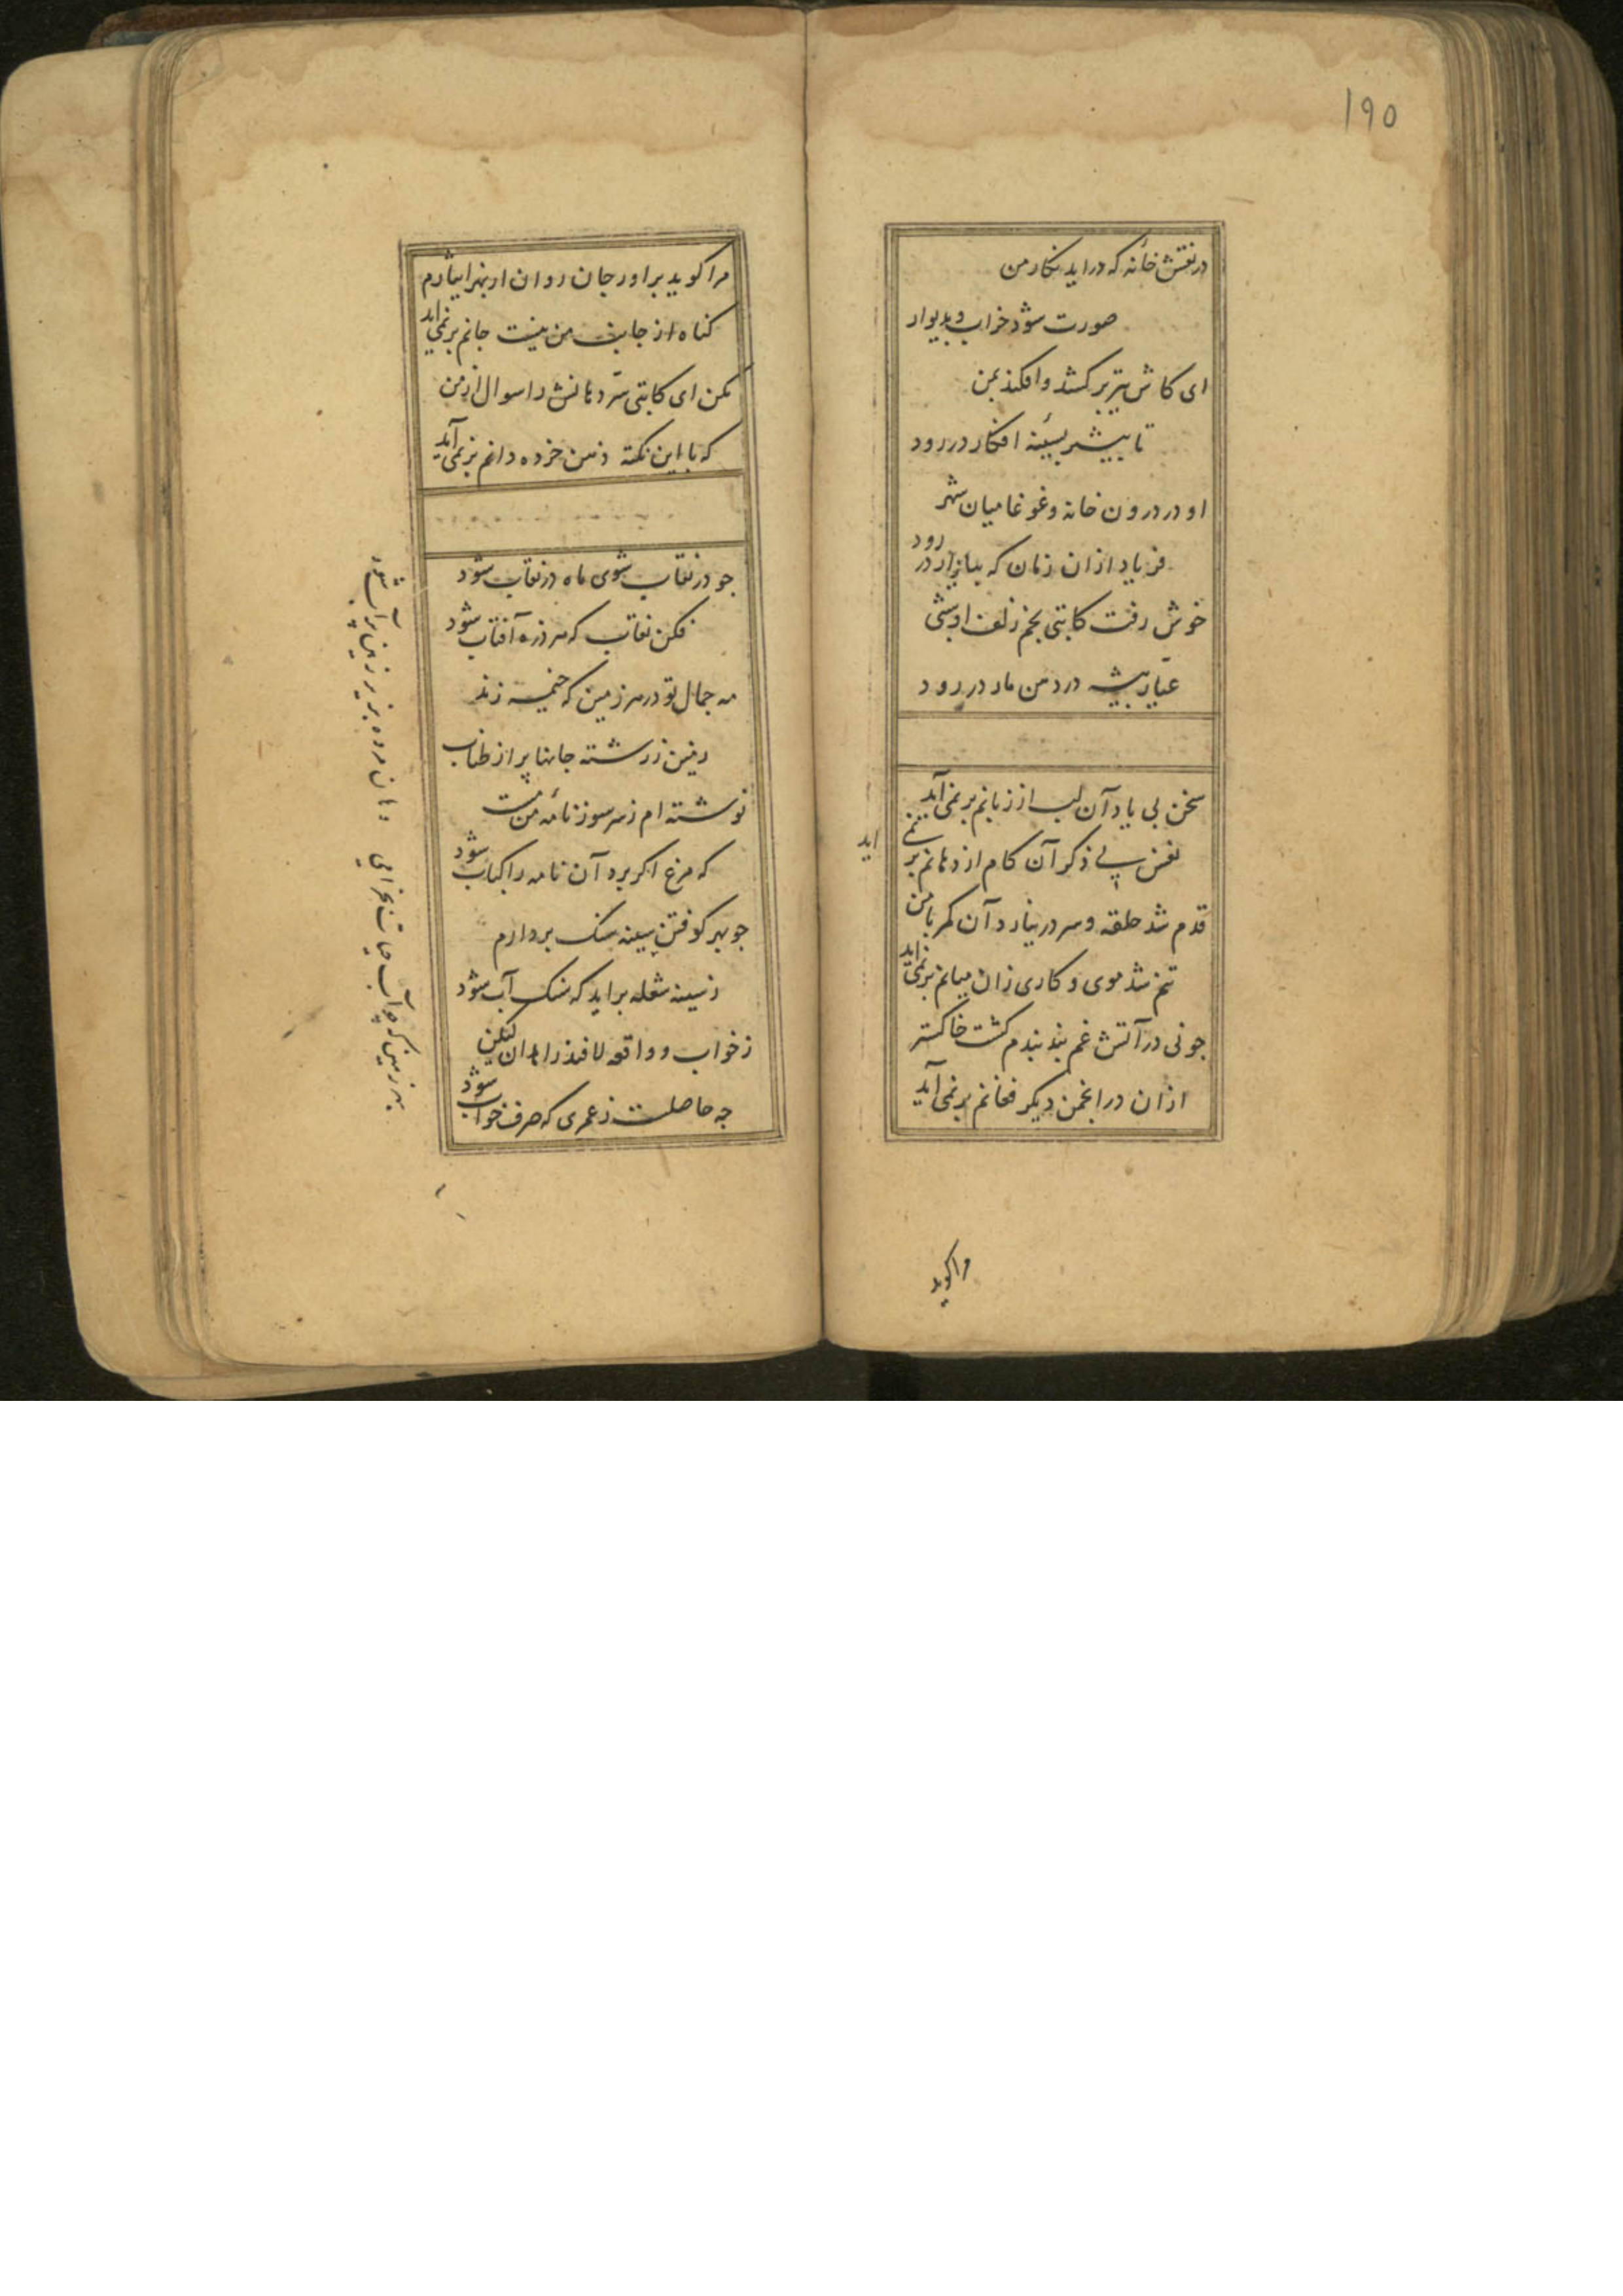 ١٩٥
در نقش خانه که در اید نکار من
صورت شود خراب و بدیوار
ای کاش تیر برکشد و افکند بمن
تا بیشتر بسینه افکار در رود
او در درون خانه و غوغا میان شهر
فریاد ازان زمان که ببازار در رود
خوش رفت کابتی بخم زلف او شبی
عیار پیشه در دهن مار در رود
سخن بی یاد آن لب از زبانم بر نمی آید
نفس بی ذکر آن کام از دهانم بر نمی اید
قدم شد حلقه و سر در نیارد آن کمر با من
تنم شد موی و کاری زان میانم بر نمی اید
جو نی در آتش غم بند بندم کشت خاکستر
ازان در انجمن دیکر فغانم بر نمی آید
مرا کوید
مرا کوید براور جان روان از بهر ایثارم
کناه از جانب من نیست جانم بر نمی اید
مکن ای کابتی سر دهانش را سوال از من
که با این نکته ذهن خرده دانم بر نمی آید
جو در نقاب شوی ماه در نقاب شود
فکن نقاب که هر ذره آفتاب شود
مه جمال تو در هر زمین که خیمه زند
زمین ز رشته جانها پر از طناب
نوشته ام ز سر سوز نامه من مست
که مرغ اکر برد آن نامه را کباب شود
جو بهر کوفتن سینه سنک بردارم
ز سینه شعله براید که سنک آب شود
ز خواب و واقعه لافند زاهدان لیکن
جه حاصلست ز عمری که صرف خواب شود
بهر زمین که چو آب حیات بخرامی
دهان مرده بزیر زمین پر آب شود